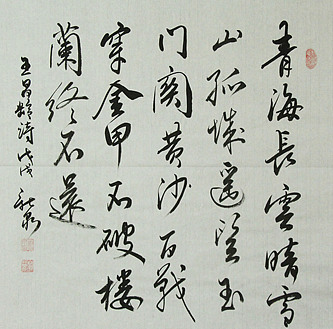 青海長雲暗雪
山孤城遥望玉
門関黄沙百戰
穿金甲不破樓
蘭終不還
王昌齡詩戊戌